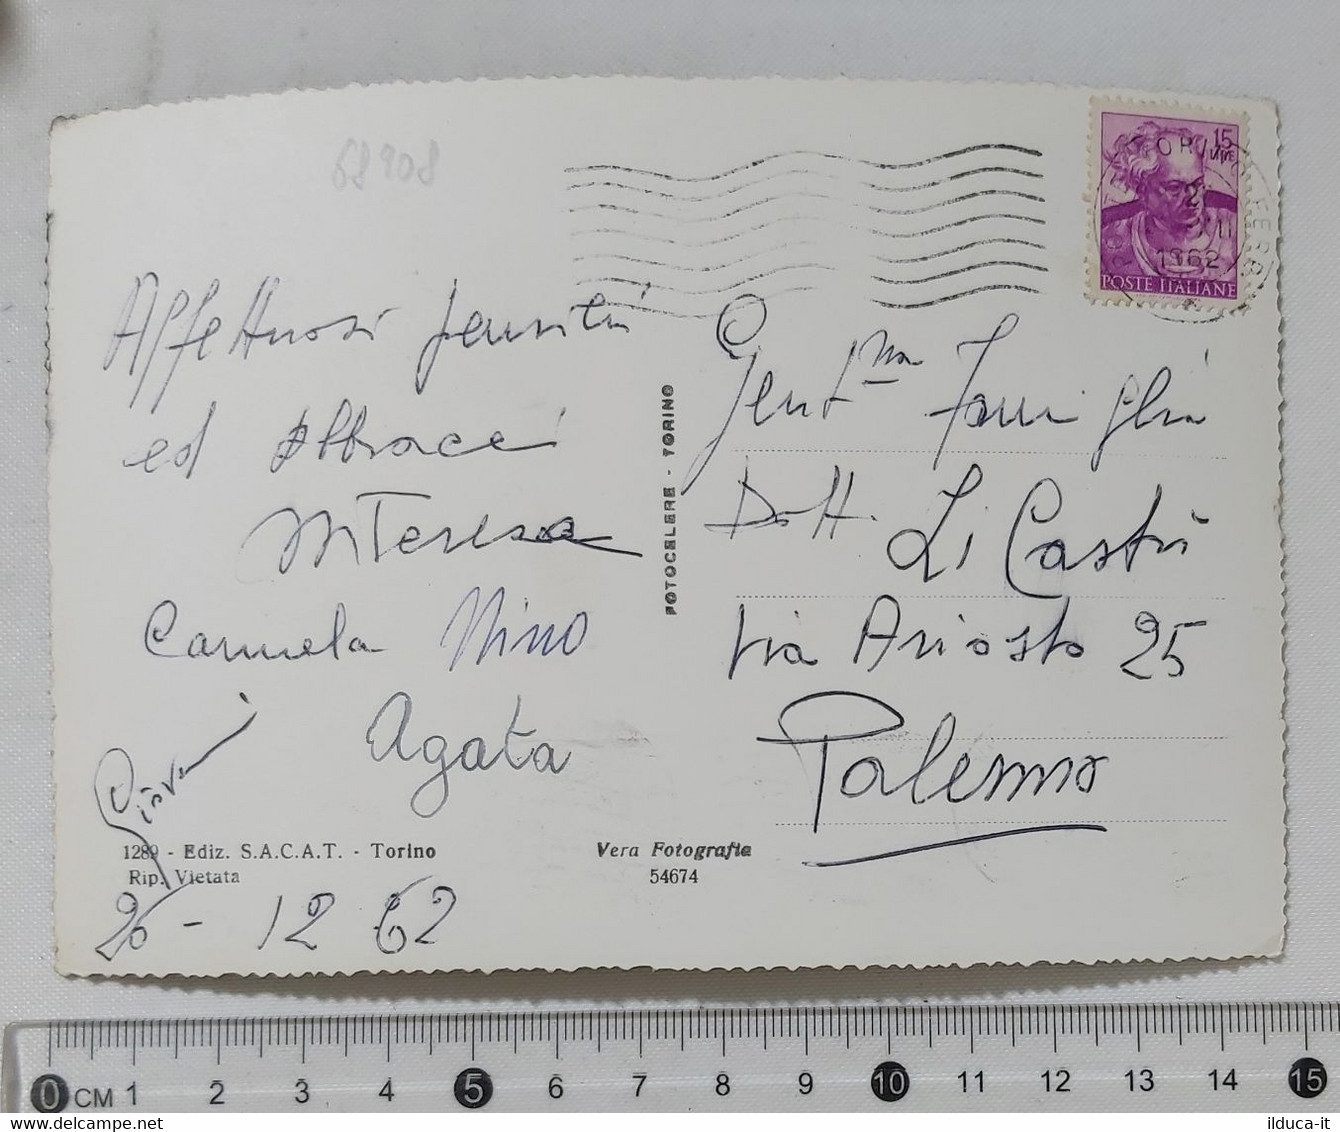 68908
15
LIRE
1962
POSTE ITALIANE
Affettuosi pensieri
ed Abbracci
MTeresa
Carmela Nino
Agata
Giovanni
26 - 12 62
1289 - Ediz. S.A.C.A.T. - Torino
Rip. Vietata
Vera Fotografia
54674
FOTOCELERE - TORINO
Gent.ma Famiglia
Dott. Li Castri
Via Ariosto 25
Palermo
0 CM 1 2 3 4 5 6 7 8 9 10 11 12 13 14 15
www.delcampe.net
ilduca-it